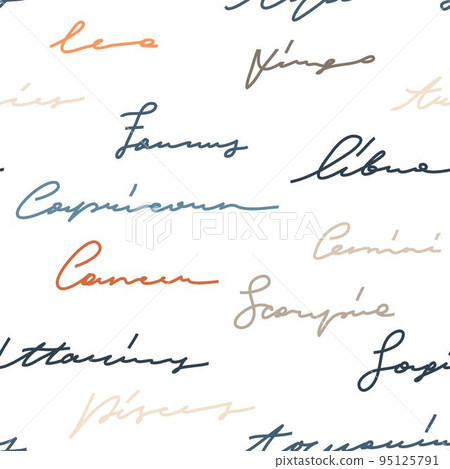 leo
Virgo
ries
Taurus
libra
Capricorn
Gemini
Cancer
Scorpio
ittarius
Sagi
Pisces
Aquarius
PIXTA
pixta.jp - 95125791